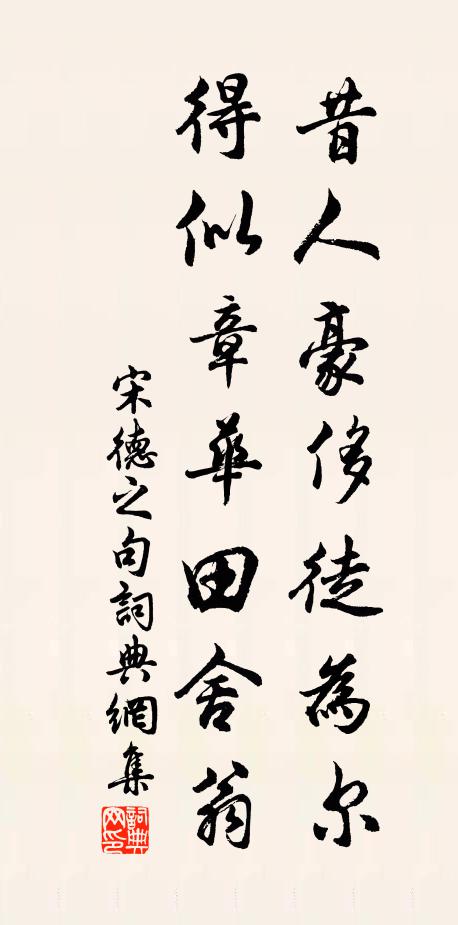 昔人豪侈徒為尔
得似章華田舍翁
宋德之句詞典網集
詞典網印